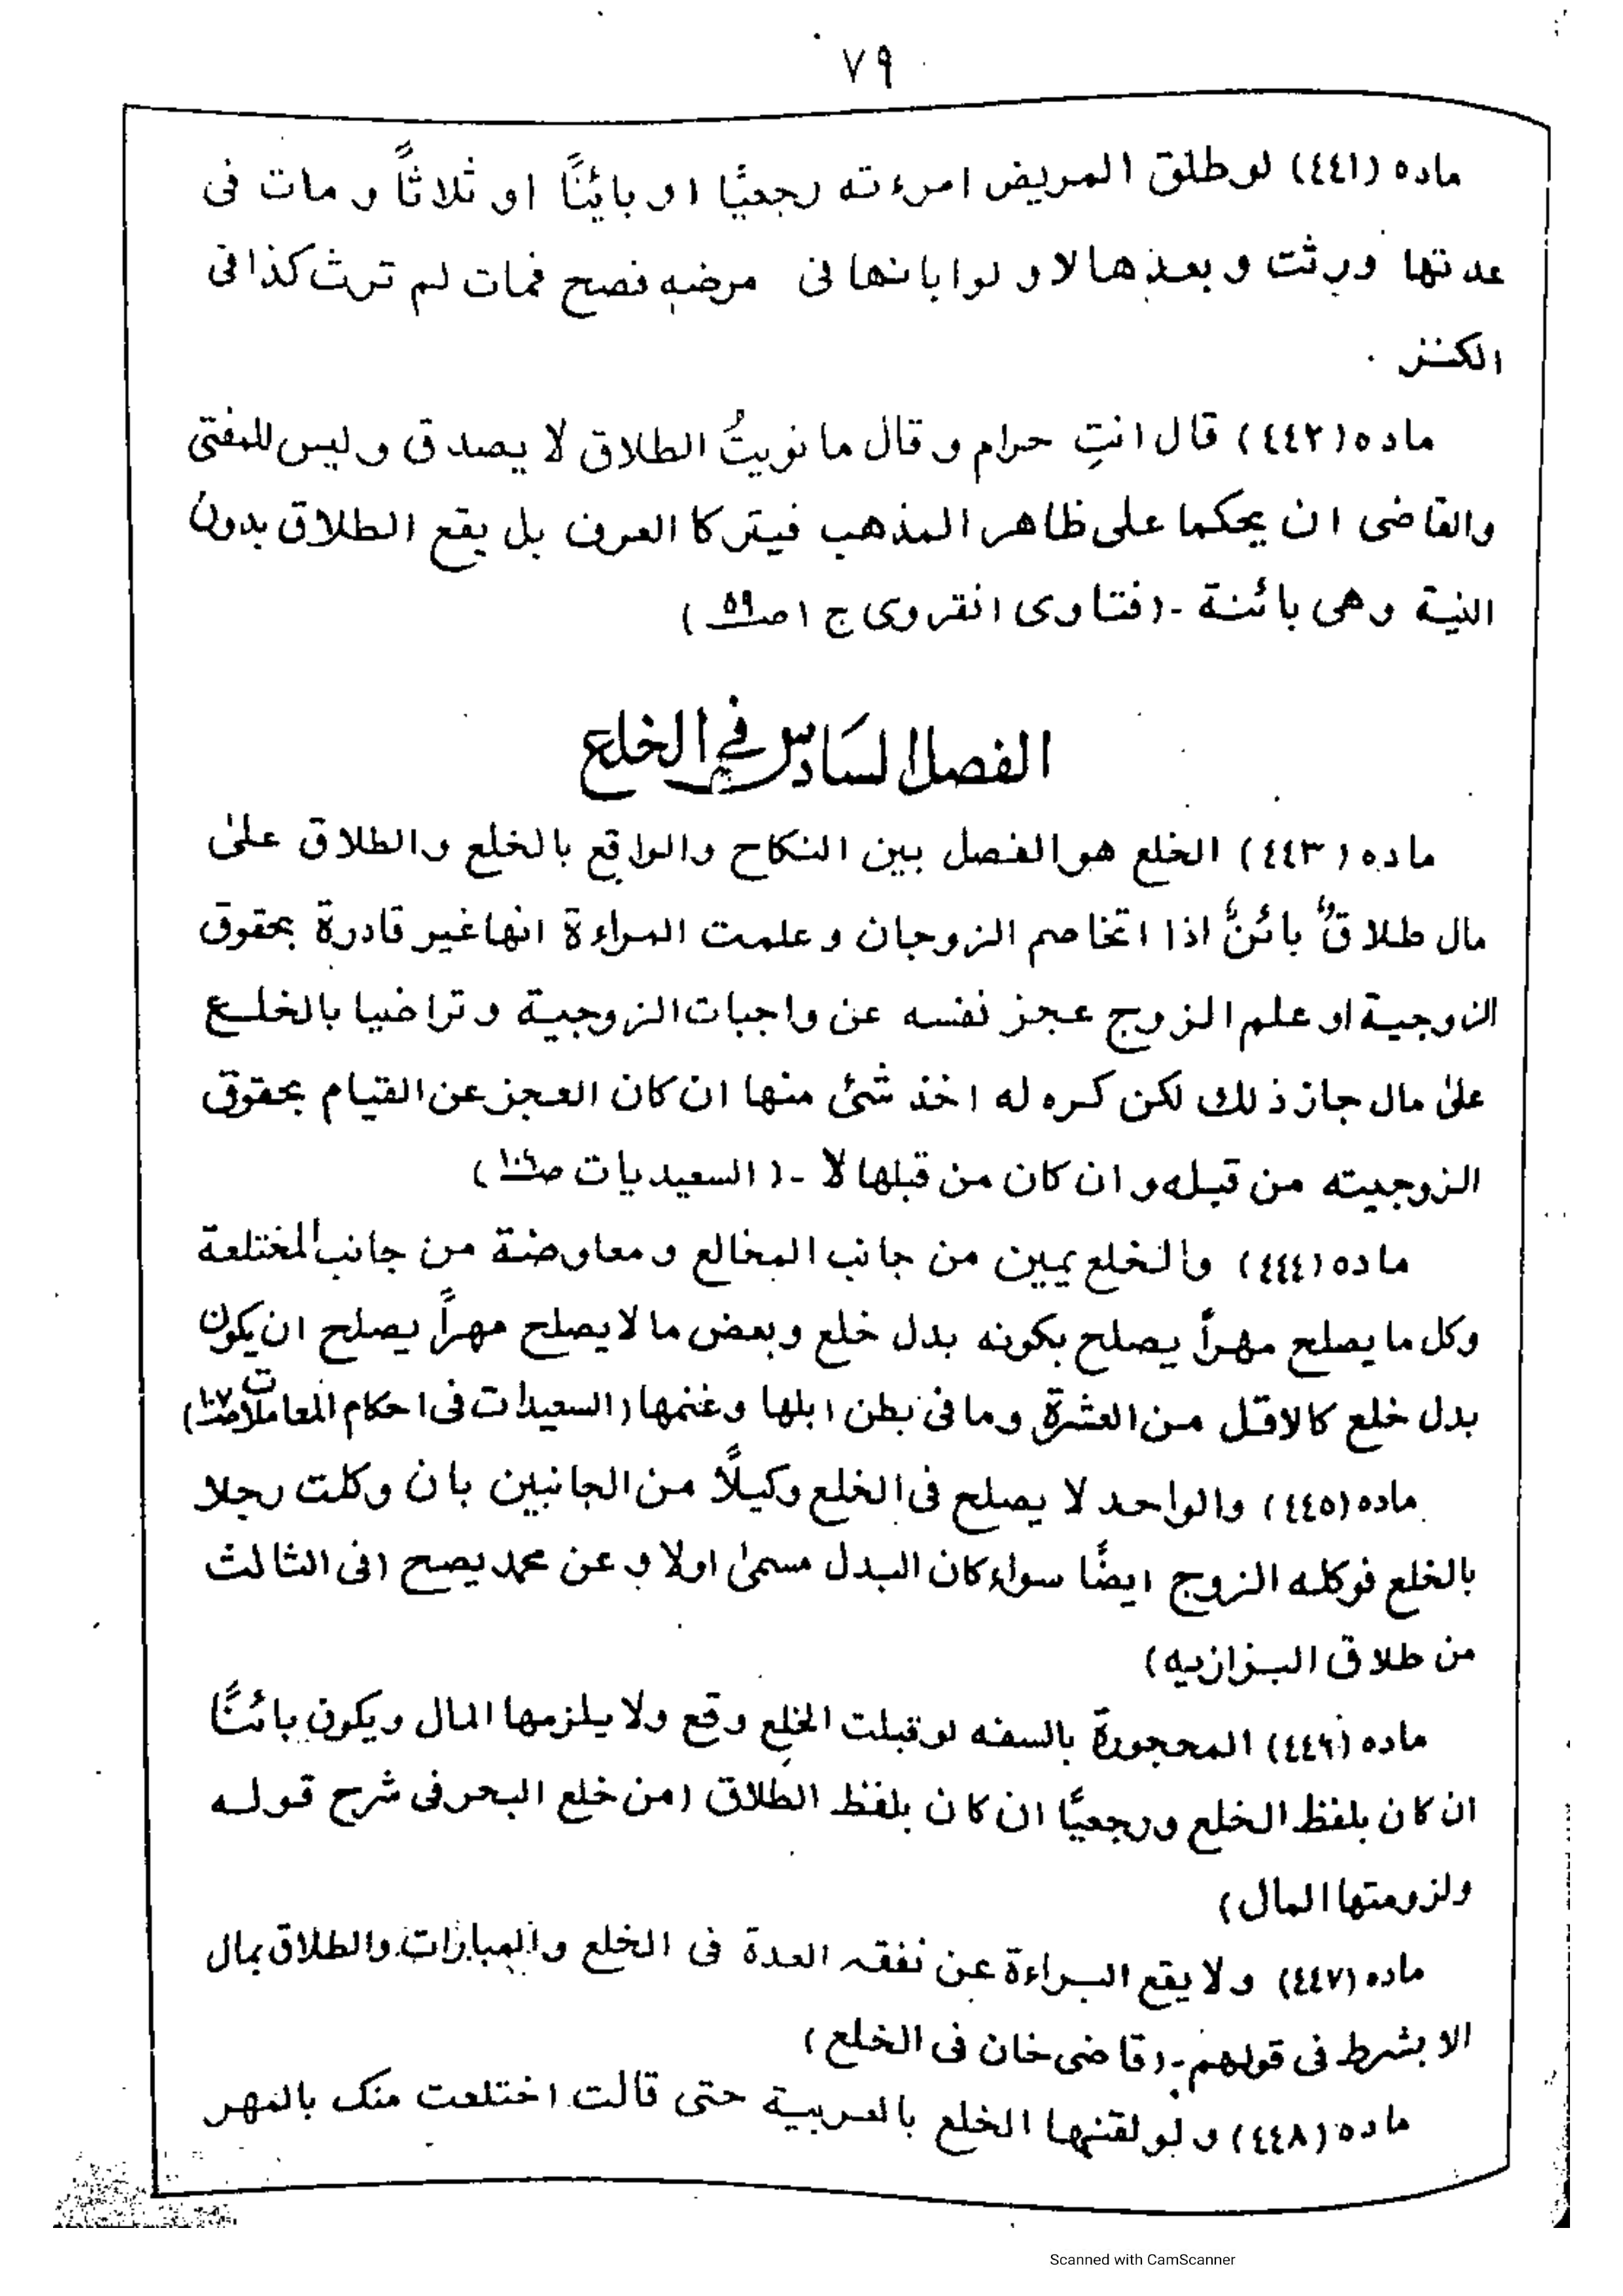 ٧٩
ماده (٤٤١) لو طلق المريض امرءته رجعيًا او بائنًا او ثلاثاً و مات فى
عدتها ورثت و بعدها لا و لو ابانها فى مرضه فصح فمات لم ترث كذا فى
الكنز .
ماده (٤٤٢) قال انتِ حرام و قال ما نويتُ الطلاق لا يصدق و ليس للمفتى
والقاضى ان يحكما على ظاهر المذهب فيتركا العرف بل يقع الطلاق بدون
النية وهى بائنة ـ (فتاوى انقروى ج ١ صـ ٥٩)
الفصل السادس في الخلع
ماده (٤٤٣) الخلع هو الفصل بين النكاح والواقع بالخلع والطلاق علىٰ
مال طلاقٌ بائنٌ اذا اتخاصم الزوجان و علمت المراءة انها غير قادرة بحقوق
الزوجية او علم الزوج عجز نفسه عن واجبات الزوجية و تراضيا بالخلع
علىٰ مال جاز ذلك لكن كره له اخذ شئ منها ان كان العجز عن القيام بحقوق
الزوجيته من قبله و ان كان من قبلها لا ـ (السعيديات صـ)
ماده (٤٤٤) والخلع يمين من جانب المخالع و معاوضة من جانب المختلعة
وكل ما يصلح مهراً يصلح بكونه بدل خلع و بعض ما لا يصلح مهراً يصلح ان يكون
بدل خلع كالاقل من العشرة و ما فى بطن ابلها و غنمها (السعيدات فى احكام المعاملات صـ ١٠٧)
ماده (٤٤٥) والواحد لا يصلح فى الخلع وكيلاً من الجانبين بان وكلت رجلا
بالخلع فوكله الزوج ايضًا سواء كان البدل مسمىٰ اولا و عن محمد يصح (فى الثالث
من طلاق البزازيه)
ماده (٤٤٦) المحجورة بالسفه لو قبلت الخلع وقع ولا يلزمها المال ويكون بائنًا
ان كان بلفظ الخلع ورجعيًا ان كان بلفظ الطلاق (من خلع البحر فى شرح قوله
ولزومتها المال)
ماده (٤٤٧) ولا يقع البراءة عن نفقه العدة فى الخلع والمبارات والطلاق بمال
الا بشرط فى قولهم ـ (قاضى خان فى الخلع)
ماده (٤٤٨) ولو لقنها الخلع بالعربية حتى قالت اختلعت منك بالمهر
Scanned with CamScanner